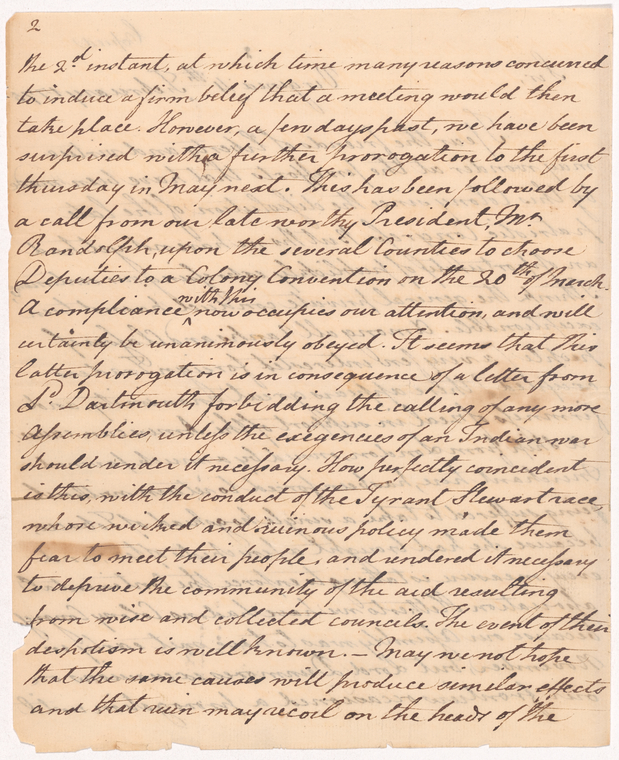 2
the 2d instant, at which time many reasons concurred
to induce a firm belief that a meeting would then
take place. However, a few days past, we have been
surprised with a further prorogation to the first
thursday in May next. This has been followed by
a call from our late worthy President, Mr
Randolph, upon the several Counties to choose
Deputies to a Colony Convention on the 20th of March.
A compliance with this now occupies our attention, and will
certainly be unanimously obeyed. It seems that this
latter prorogation is in consequence of a letter from
Ld Dartmouth forbidding the calling of any more
Assemblies, unless the exegencies of an Indian war
should render it necessary. How perfectly coincident
is this, with the conduct of the Tyrant Stewart race,
whose wicked and ruinous policy made them
fear to meet their people, and rendered it necessary
to deprive the community of the aid resulting
from wise and collected councils. The event of their
despotism is well known. — May we not hope
that the same causes will produce similar effects
and that ruin may recoil on the heads of the